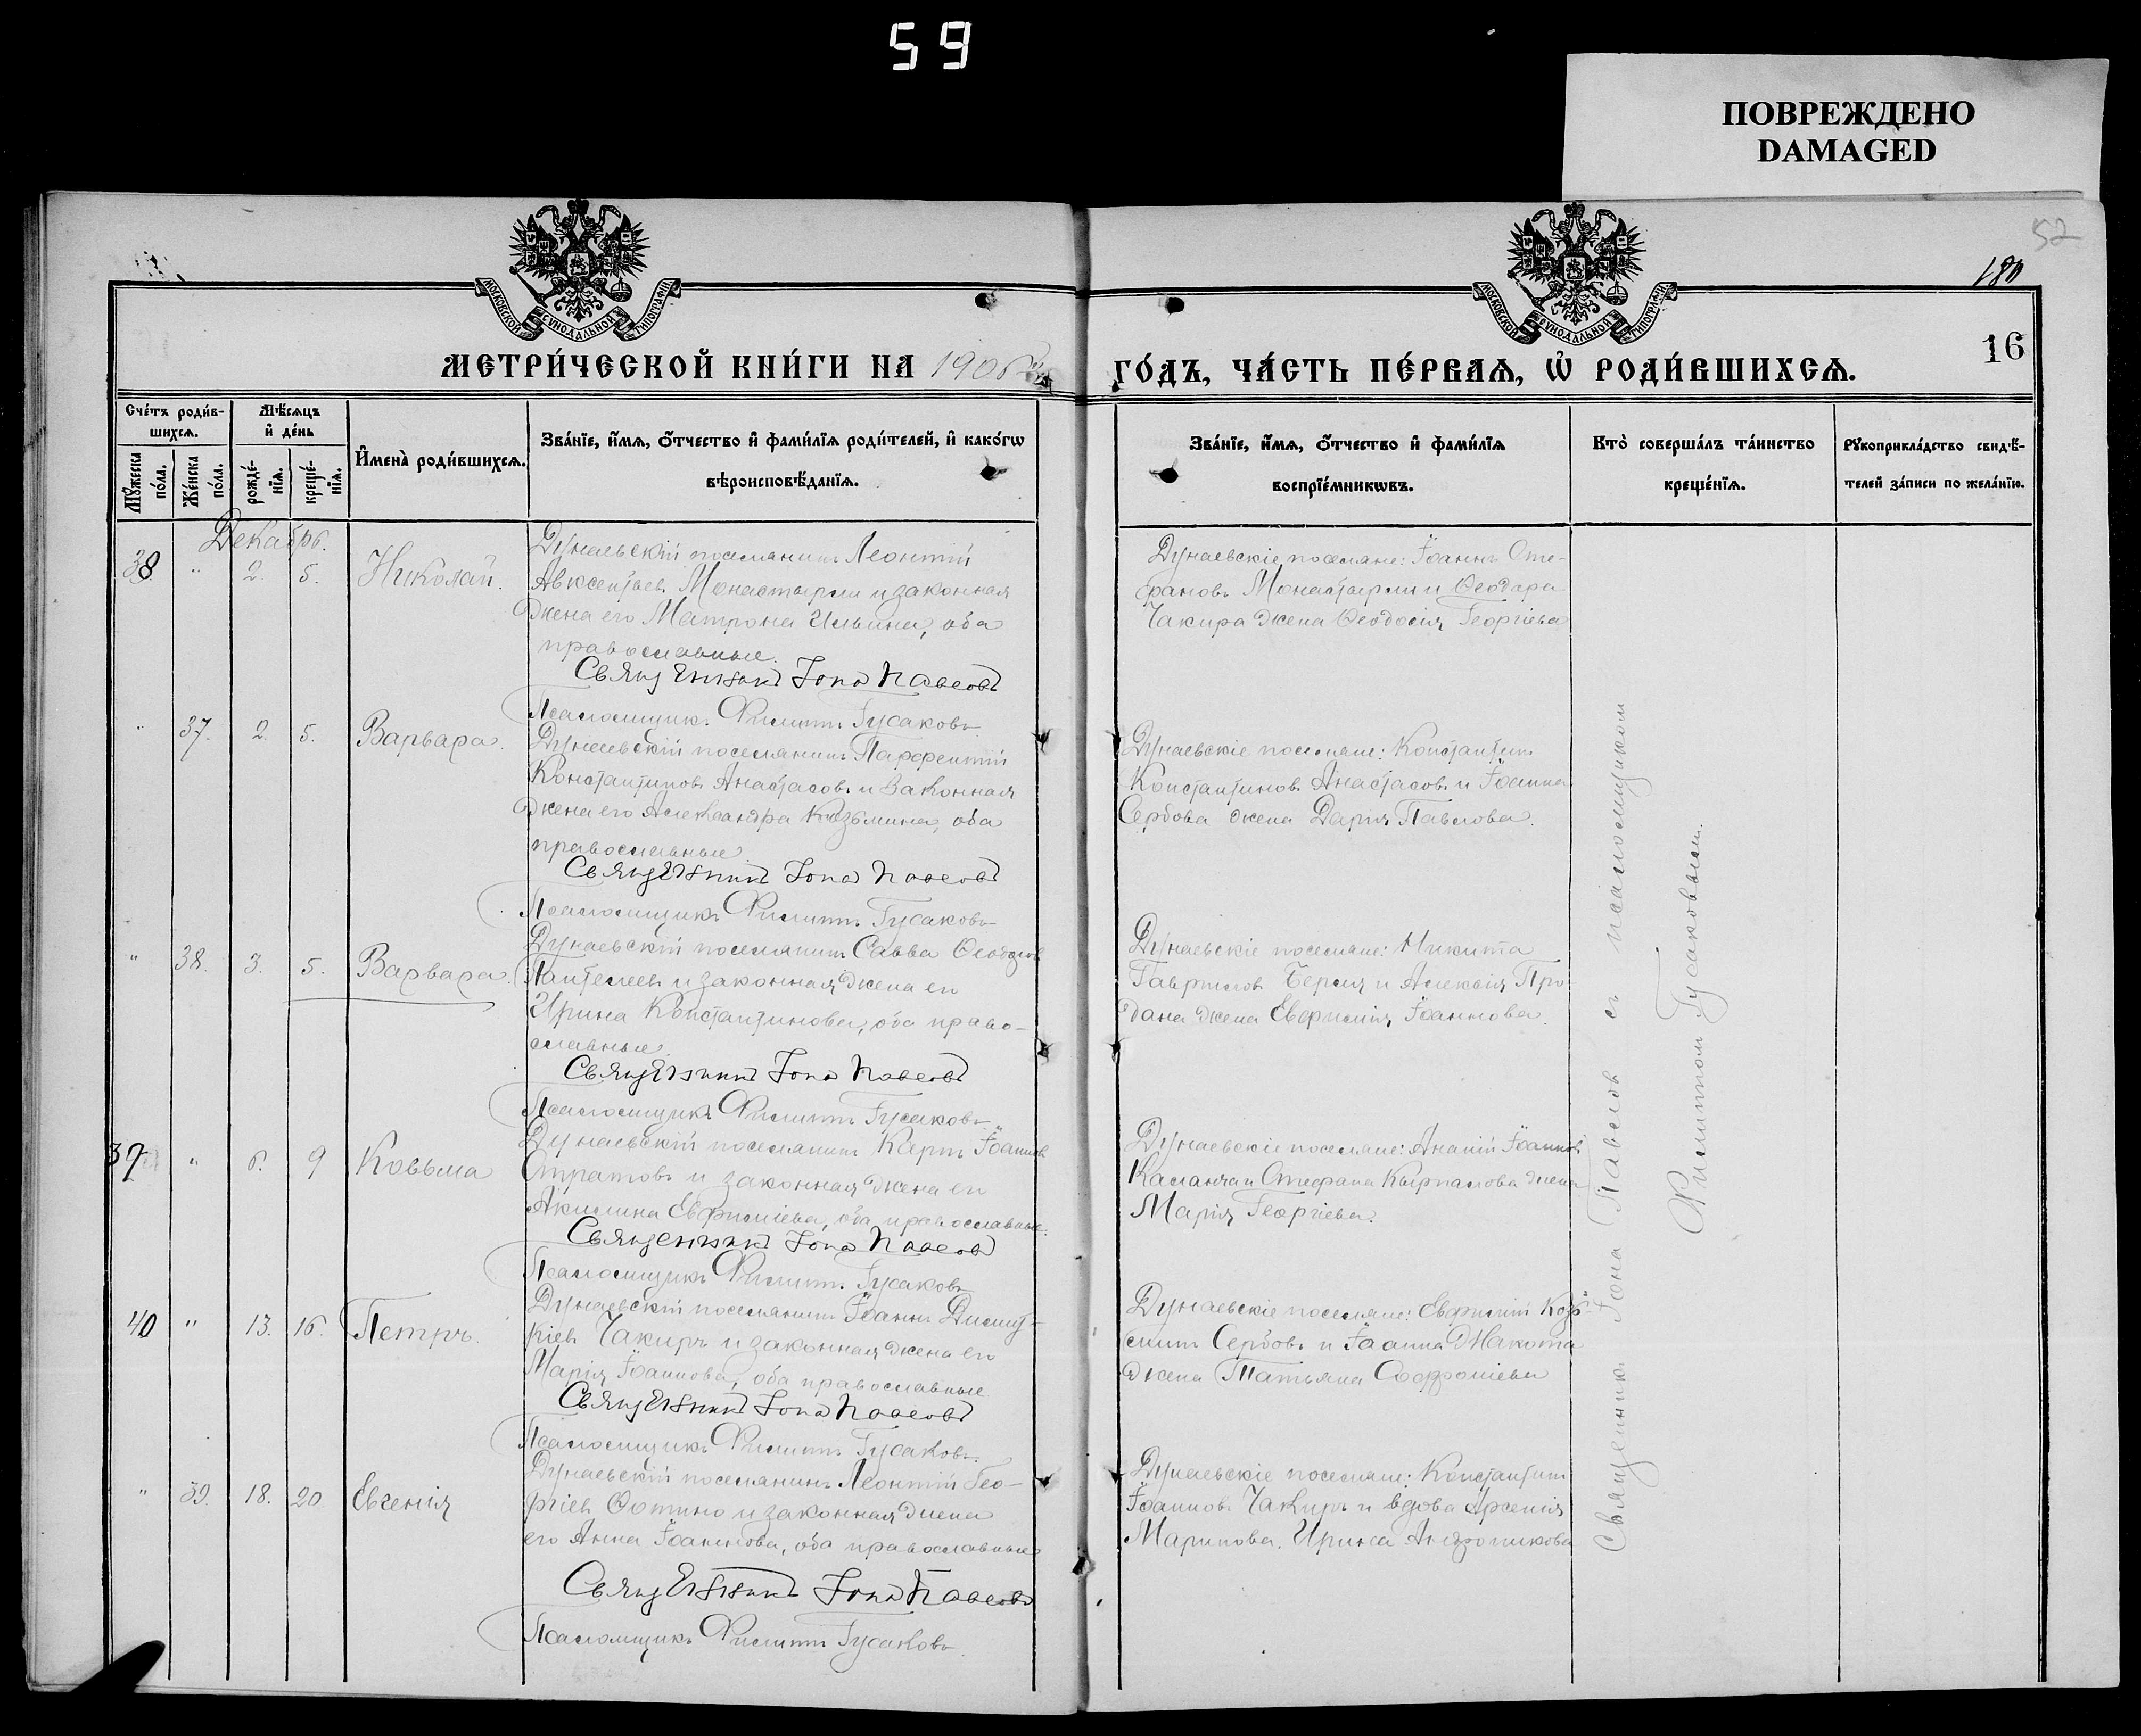 59
ПОВРЕЖДЕНО
DAMAGED
52
180
16
МОСКОВСКОЙ СУНОДАЛЬНОЙ ТИПОГРАФІИ
МОСКОВСКОЙ СУНОДАЛЬНОЙ ТИПОГРАФІИ
МЕТРИ́ЧЕСКОЙ КНИ́ГИ НА 1906
ГО́ДЪ, ЧА́СТЬ ПЕ́РВАѦ, Ѡ҆ РОДИ́ВШИХСѦ.
Сче́тъ роди́в-
шихсѧ.
Мѣ́сѧцъ
и҆ де́нь
Мꙋ́жеска
по́ла.
Же́нска
по́ла.
рожде́-
нїѧ.
креще́-
нїѧ.
И҆мена̀ роди́вшихсѧ.
Зва́нїе, и҆́мѧ, ѻ҆́тчество и҆ фами́лїѧ роди́телей, и҆ како́гѡ
вѣроисповѣ́данїѧ.
Зва́нїе, и҆́мѧ, ѻ҆́тчество и҆ фами́лїѧ
воспрїе́мникѡвъ.
Кто̀ соверша́лъ та́инство
креще́нїѧ.
Рꙋкоприкла́дство свидѣ́-
телей за́писи по жела́нїю.
Декабрь.
38 " 2. 5. Николай.
Дунаевскій поселянинъ Леонтій
Авксентьев. Монастырли и законная
жена его Матрона Ильина, оба
православные.
Священникъ Іона Павловъ
Псаломщикъ Филиппъ Гусаковъ
Дунаевскіе поселяне: Іоаннъ Сте-
фановъ Монастырли и Ѳеодора
Чакира жена Ѳеодосія Георгіева
" 37. 2. 5. Варвара.
Дунаевскій поселянинъ Парфентій
Константиновъ Анастасовъ и законная
жена его Александра Козьмина, оба
православные
Священникъ Іона Павловъ
Псаломщикъ Филиппъ Гусаковъ
Дунаевскіе поселяне: Константинъ
Константиновъ Анастасовъ и Іоанна
Сербова жена Дарія Павлова.
" 38. 3. 5. Варвара.
Дунаевскій поселянинъ Савва
Пантелеев и законная жена его
Ирина Константинова, оба право-
славные.
Священникъ Іона Павловъ
Псаломщикъ Филиппъ Гусаковъ
Дунаевскіе поселяне: Никита
Гаврилов и Алексія Про-
дана жена Евфимія Іоаннова.
39 " 6. 9 Козьма
Дунаевскій поселянинъ Карпъ Іоаннов
Стратовъ и законная жена его
Акилина Евфиміева, оба православные.
Священникъ Іона Павловъ
Псаломщикъ Филиппъ Гусаковъ
Дунаевскіе поселяне: Ананій Іоаннов
Каланча и Стефана жена
Марія Георгіева.
40 " 13. 16. Петръ.
Дунаевскій поселянинъ Іоаннъ
Чакиръ и законная жена его
Марія Іоаннова, оба православные
Священникъ Іона Павловъ
Псаломщикъ Филиппъ Гусаковъ
Дунаевскіе поселяне: Евфимій Козь-
минъ Сербовъ и Іоанна Макота
жена Татьяна Софроніева
" 39. 18. 20 Евгенія
Дунаевскій поселянинъ Леонтій Гео-
ргіев Фотино и законная жена
его Анна Іоаннова, оба православные
Священникъ Іона Павловъ
Псаломщикъ Филиппъ Гусаковъ.
Дунаевскіе поселяне: Константинъ
Іоанновъ Чакиръ и вдова Арсенія
Маринова, Ирина Андроникова
Священникъ Іона Павловъ съ псаломщикомъ
Филиппомъ Гусаковымъ.